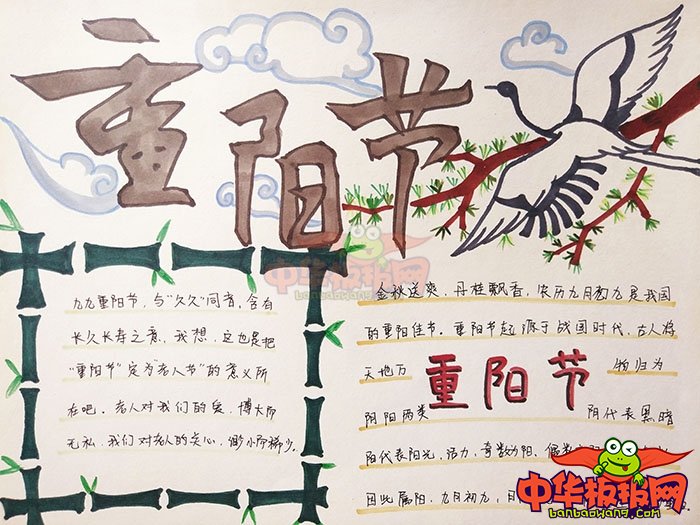 重阳节
中华板报网
banbaowang.com
九九重阳节，与“久久”同音，含有
长久长寿之意，我想，这也是把
“重阳节”定为“老人节”的意义所
在吧。老人对我们的爱，博大而
无私，我们对老人的关心，渺小而稀少。
金秋送爽，丹桂飘香，农历九月初九是我国
的重阳佳节。重阳节起源于战国时代，古人将
天地万 重阳节 物归为
阴阳两类 阴代表黑暗
阳代表阳光，活力，奇数为阳，偶数
因此属阳，九月初九，日
中华板报网
banbaowang.com